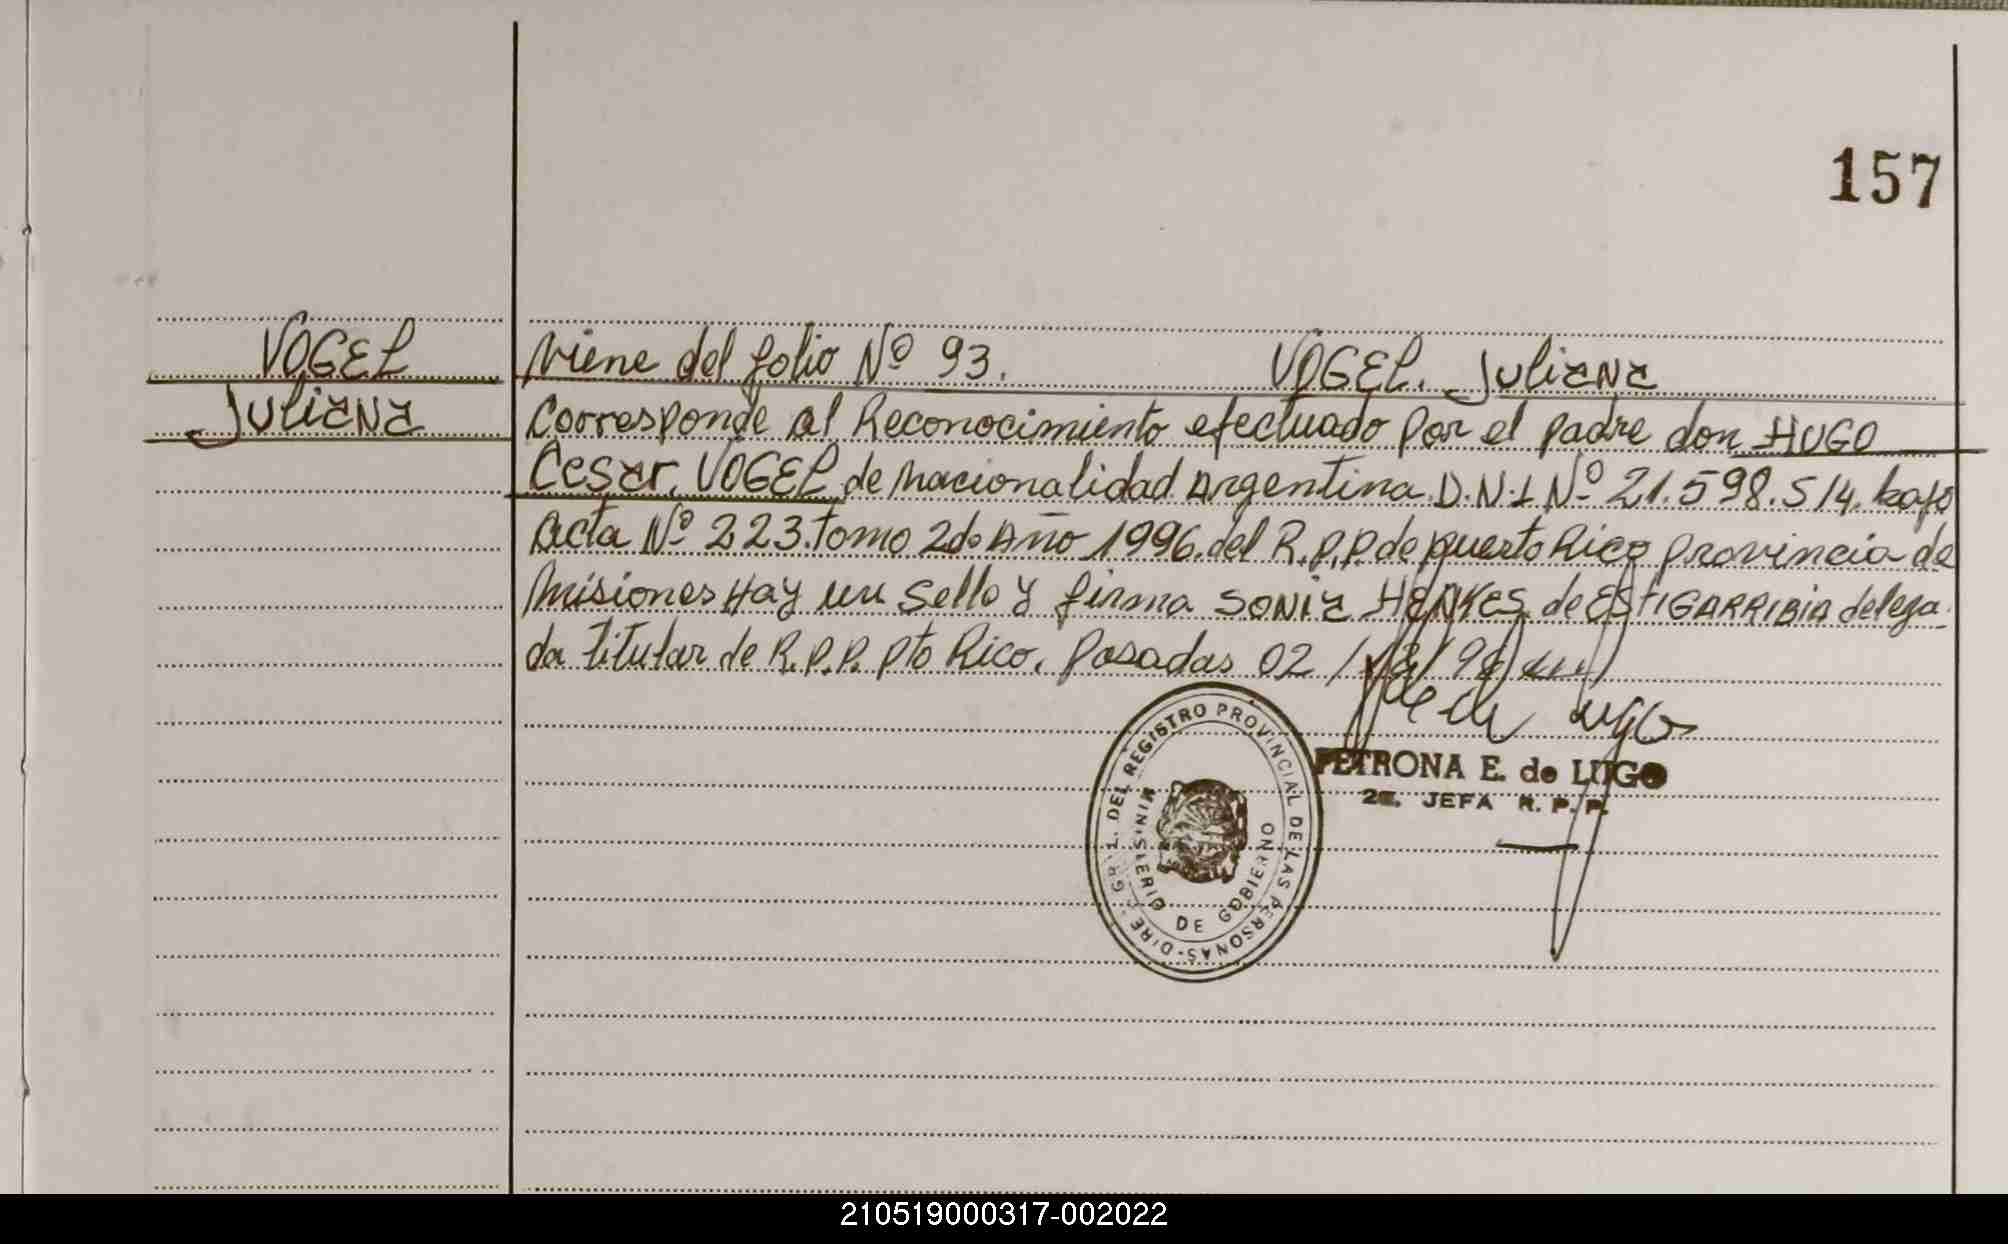 157
VOGEL
Juliana
Viene del folio Nº 93. VOGEL. Juliana
Corresponde al Reconocimiento efectuado por el padre don HUGO
Cesar. VOGEL de nacionalidad Argentina. D.N.I Nº 21.598.514. bajo
Acta Nº 223. tomo 2do Año 1996. del R.P.P. de puerto Rico provincia de
Misiones Hay un Sello y firma SONIA HENKES de ESTIGARRIBIA delega-
da titular de R.P.P. pto Rico. Posadas 02 /
DEL REGISTRO PROVINCIAL DE LAS PERSONAS
MINISTERIO DE GOBIERNO
PETRONA E. de LUGO
JEFA R. P. P.
210519000317-002022